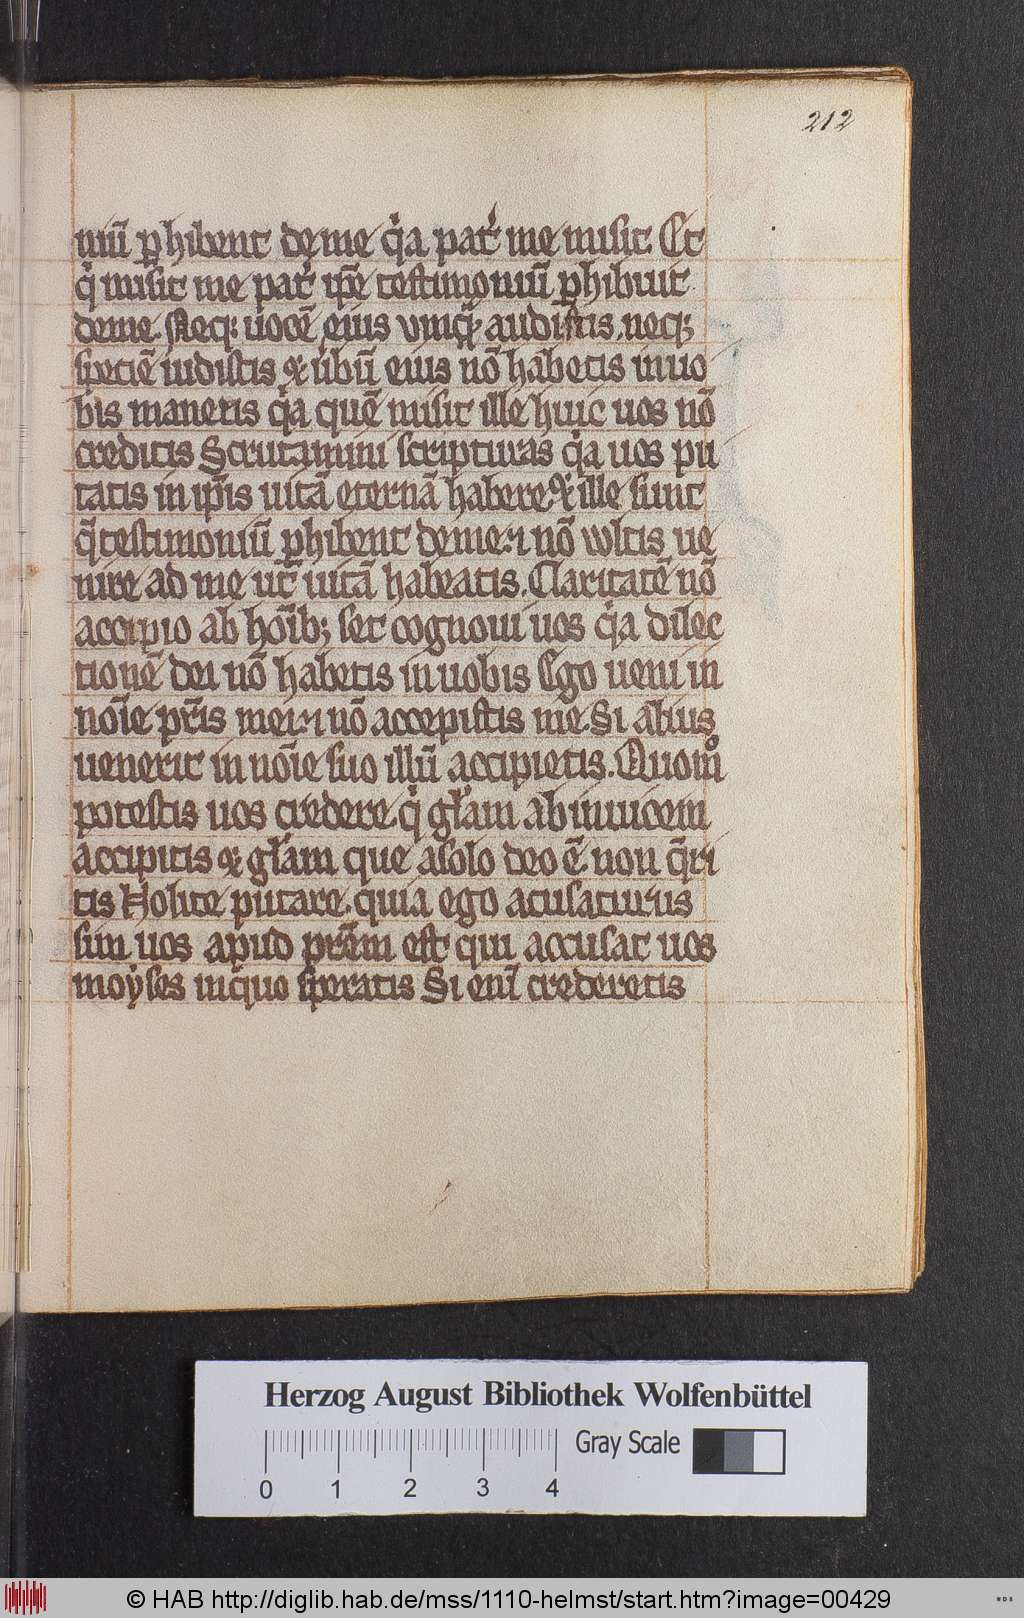 212
niū ꝑhibent de me qͥa patͬ me misit Et
qͥ misit me patͬ ip̄e testimoniū ꝑhibuit
deme. Neqꝫ uocē eius vmqͣꝫ audistis. neqꝫ
speciē uidistis ⁊ űbū eius nō habetis in uo
bis manetis qͥa quē misit ille huic uos nō
creditis Scrutamini scripturas qͥa uos pu
tatis in ip̄is uitā eternā habere. ⁊ ille sunt
q̄ testimoniū ꝑhibent deme. ⁊ nō wltis ue
nire ad me ut̄ uitā habeatis. Claritatē nō
accipio ab hōibꝫ set cognoui uos qͥa dilec
tionē dei nō habetis in uobis Ego ueni in
nōie pr̄is mei. ⁊ nō accepistis me. Si alius
uenerit in nōie suo illū accipietis. Quomͦ
potestis uos credere qͥ glām abinuicem
accipitis ⁊ glām que asolo deo ē non q̄ri
tis Nolite putare. quia ego acusaturus
sim uos apud pr̄em est qui accusat uos
moyses inquo speratis Si enī crederetis
Herzog August Bibliothek Wolfenbüttel
Gray Scale
0 1 2 3 4
© HAB http://diglib.hab.de/mss/1110-helmst/start.htm?image=00429